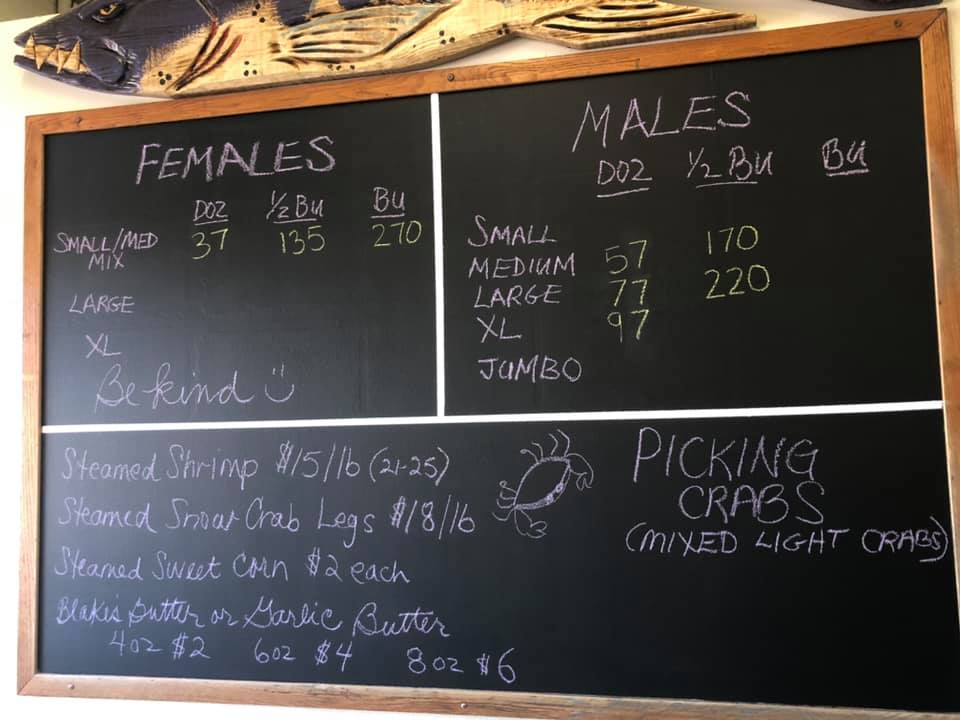 FEMALES
DOZ 1/2 Bu Bu
SMALL/MED 37 135 270
MIX
LARGE
XL
Be kind
MALES
DOZ 1/2 Bu Bu
SMALL
MEDIUM 57 170
LARGE 77 220
XL 97
JUMBO
Steamed Shrimp $15/lb (21-25)
Steamed Snow Crab Legs $18/lb
Steamed Sweet Corn $2 each
Blake's Butter or Garlic Butter
4oz $2 6oz $4 8oz $6
PICKING
CRABS
(MIXED LIGHT CRABS)